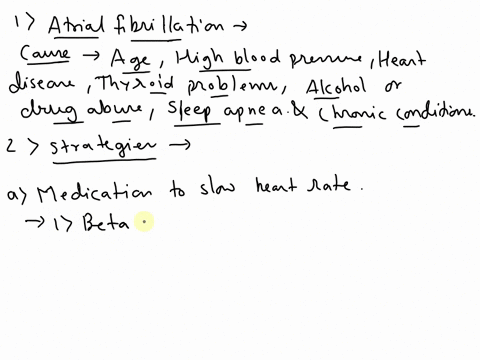 1> Atrial fibrillation →
Cause → Age, High blood pressure, Heart
disease, Thyroid problems, Alcohol or
drug abuse, Sleep apnea & Chronic conditions.
2> Strategies →
a> Medication to slow heart rate.
→ 1> Beta